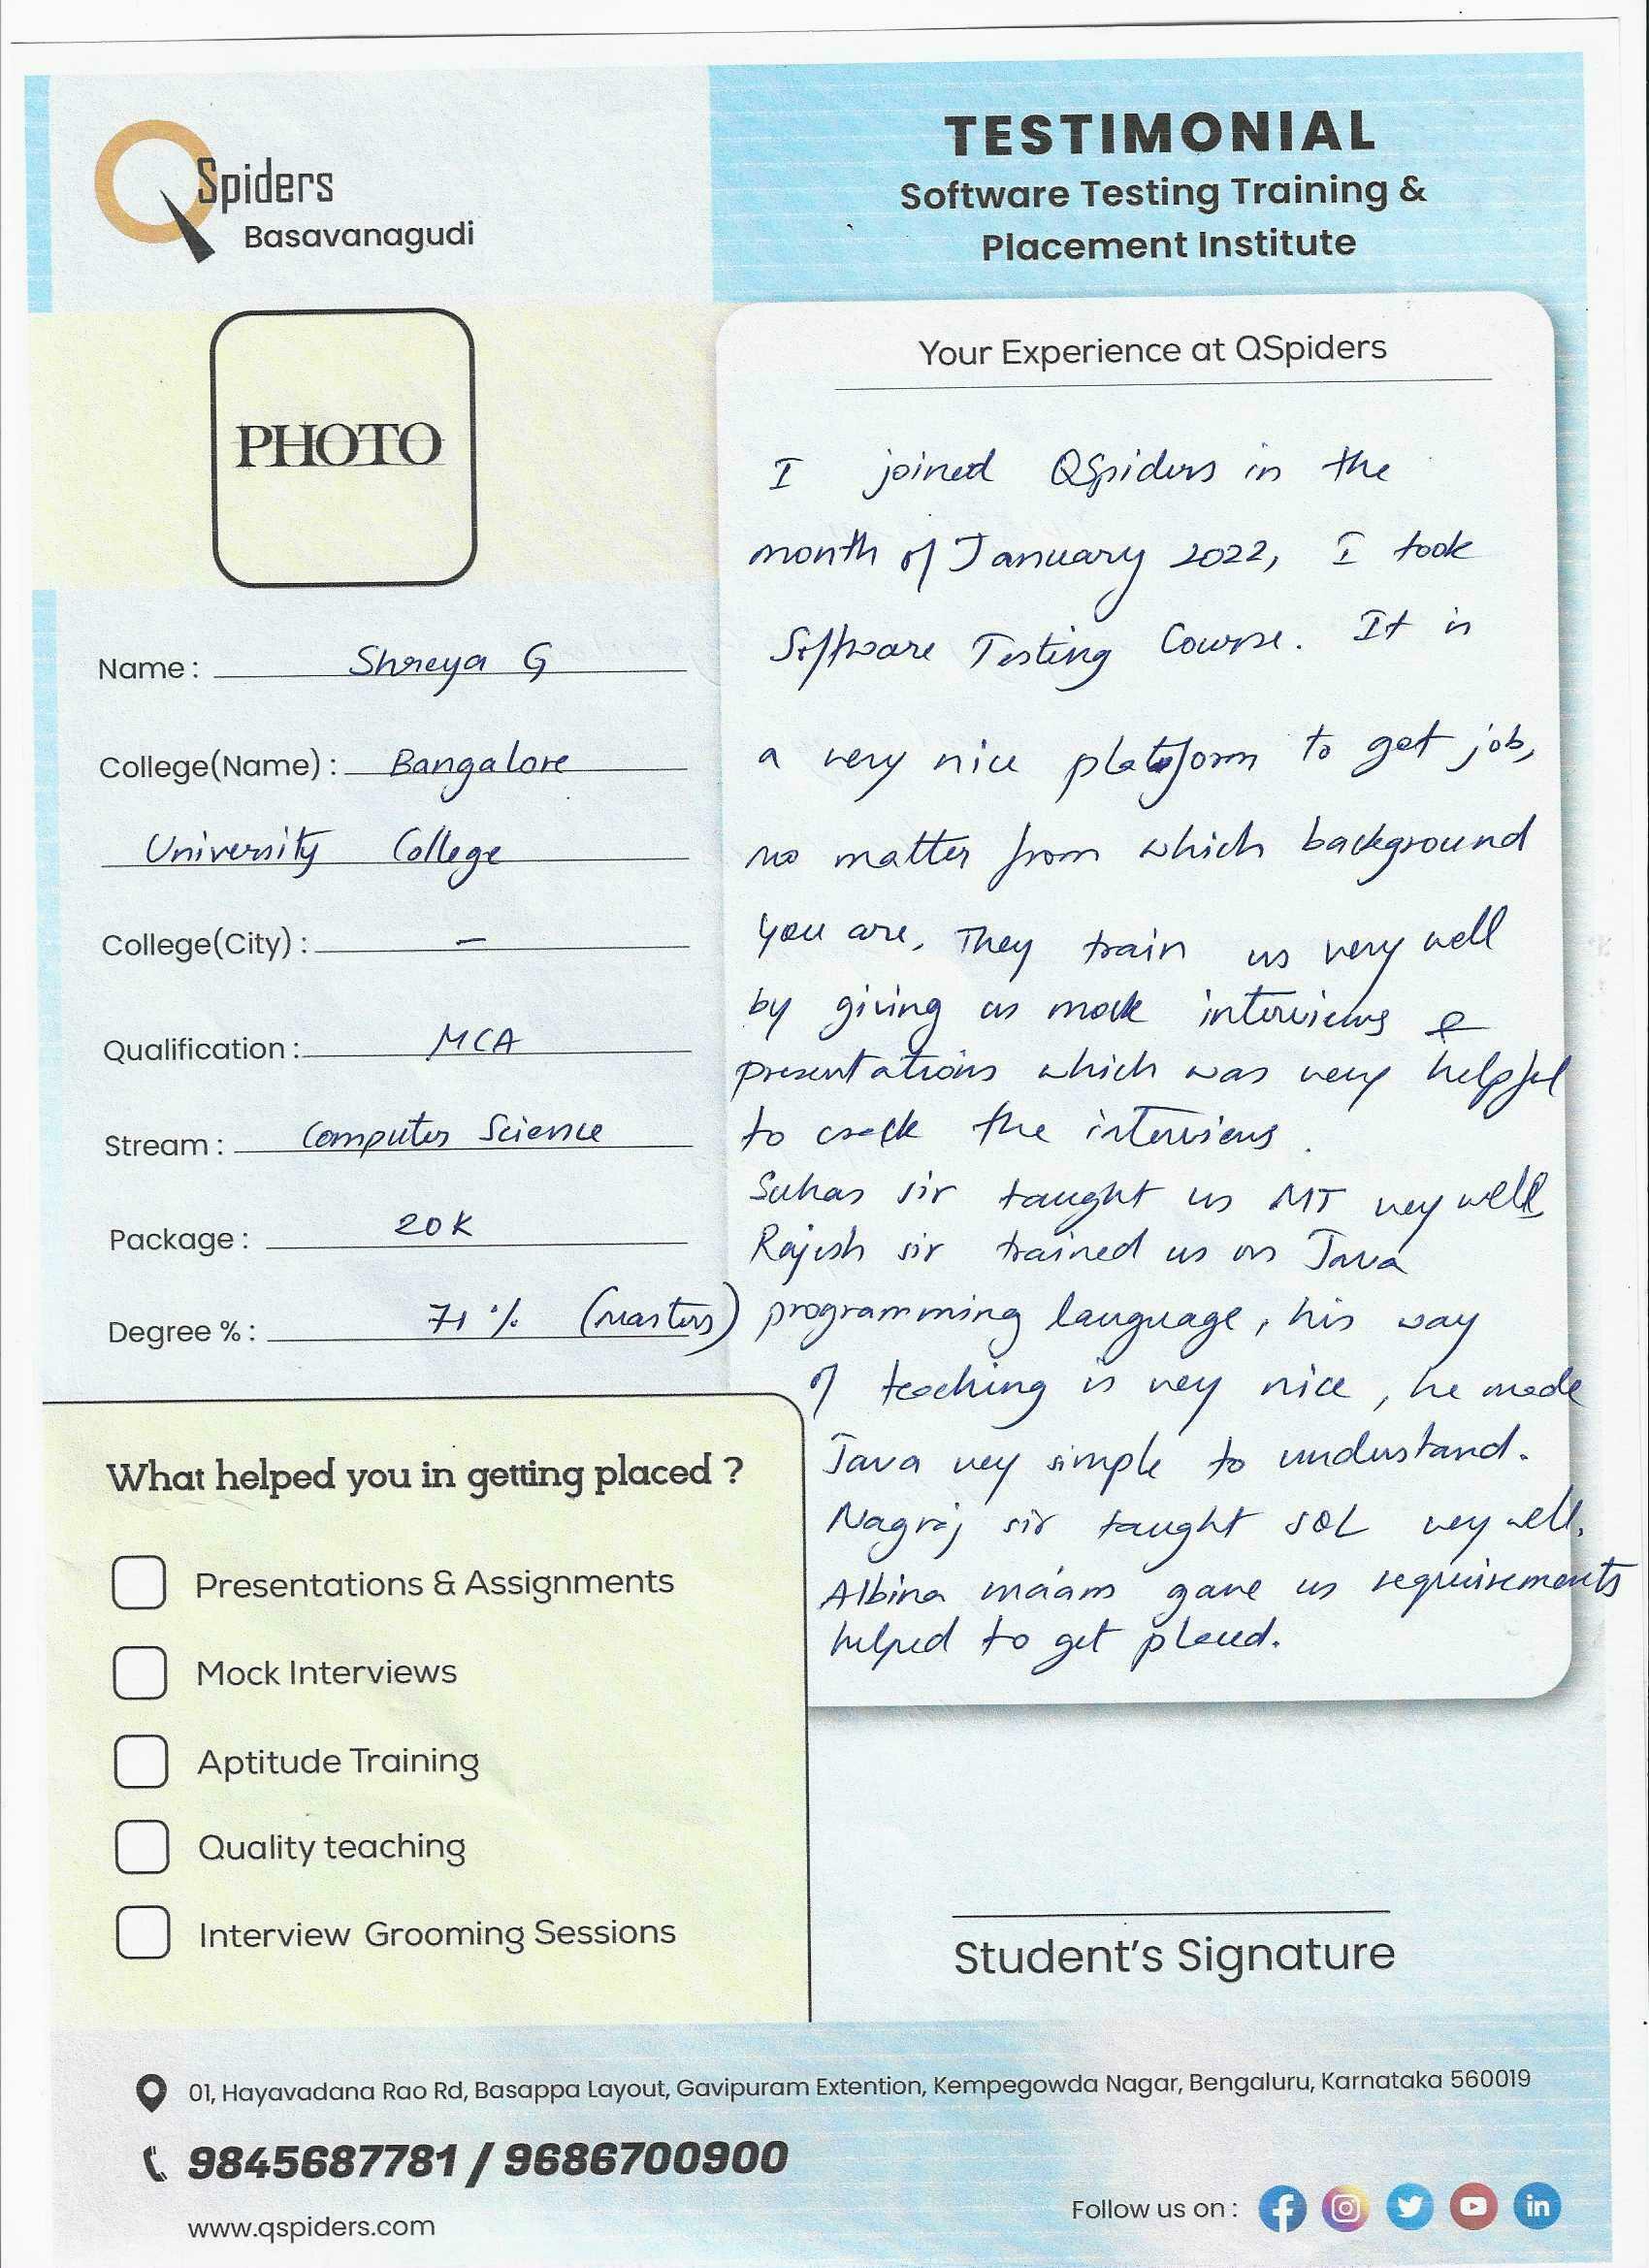 QSpiders
Basavanagudi
TESTIMONIAL
Software Testing Training &
Placement Institute
PHOTO
Name : Shreya G
College(Name) : Bangalore
University College
College(City) : –
Qualification : MCA
Stream : Computer Science
Package : 20K
Degree % : 71 % (Masters)
Your Experience at QSpiders
I joined QSpiders in the
month of January 2022, I took
Software Testing Course. It is
a very nice platform to get job,
no matter from which background
you are. They train us very well
by giving us mock interviews &
presentations which was very helpful
to crack the interviews.
Suhas sir taught us MT very well
Rajesh sir trained us on Java
programming language, his way
of teaching is very nice, he made
Java very simple to understand.
Nagraj sir taught SQL very well.
Albina ma'am gave us requirements
helped to get placed.
What helped you in getting placed ?
Presentations & Assignments
Mock Interviews
Aptitude Training
Quality teaching
Interview Grooming Sessions
Student's Signature
01, Hayavadana Rao Rd, Basappa Layout, Gavipuram Extention, Kempegowda Nagar, Bengaluru, Karnataka 560019
9845687781 / 9686700900
www.qspiders.com
Follow us on :